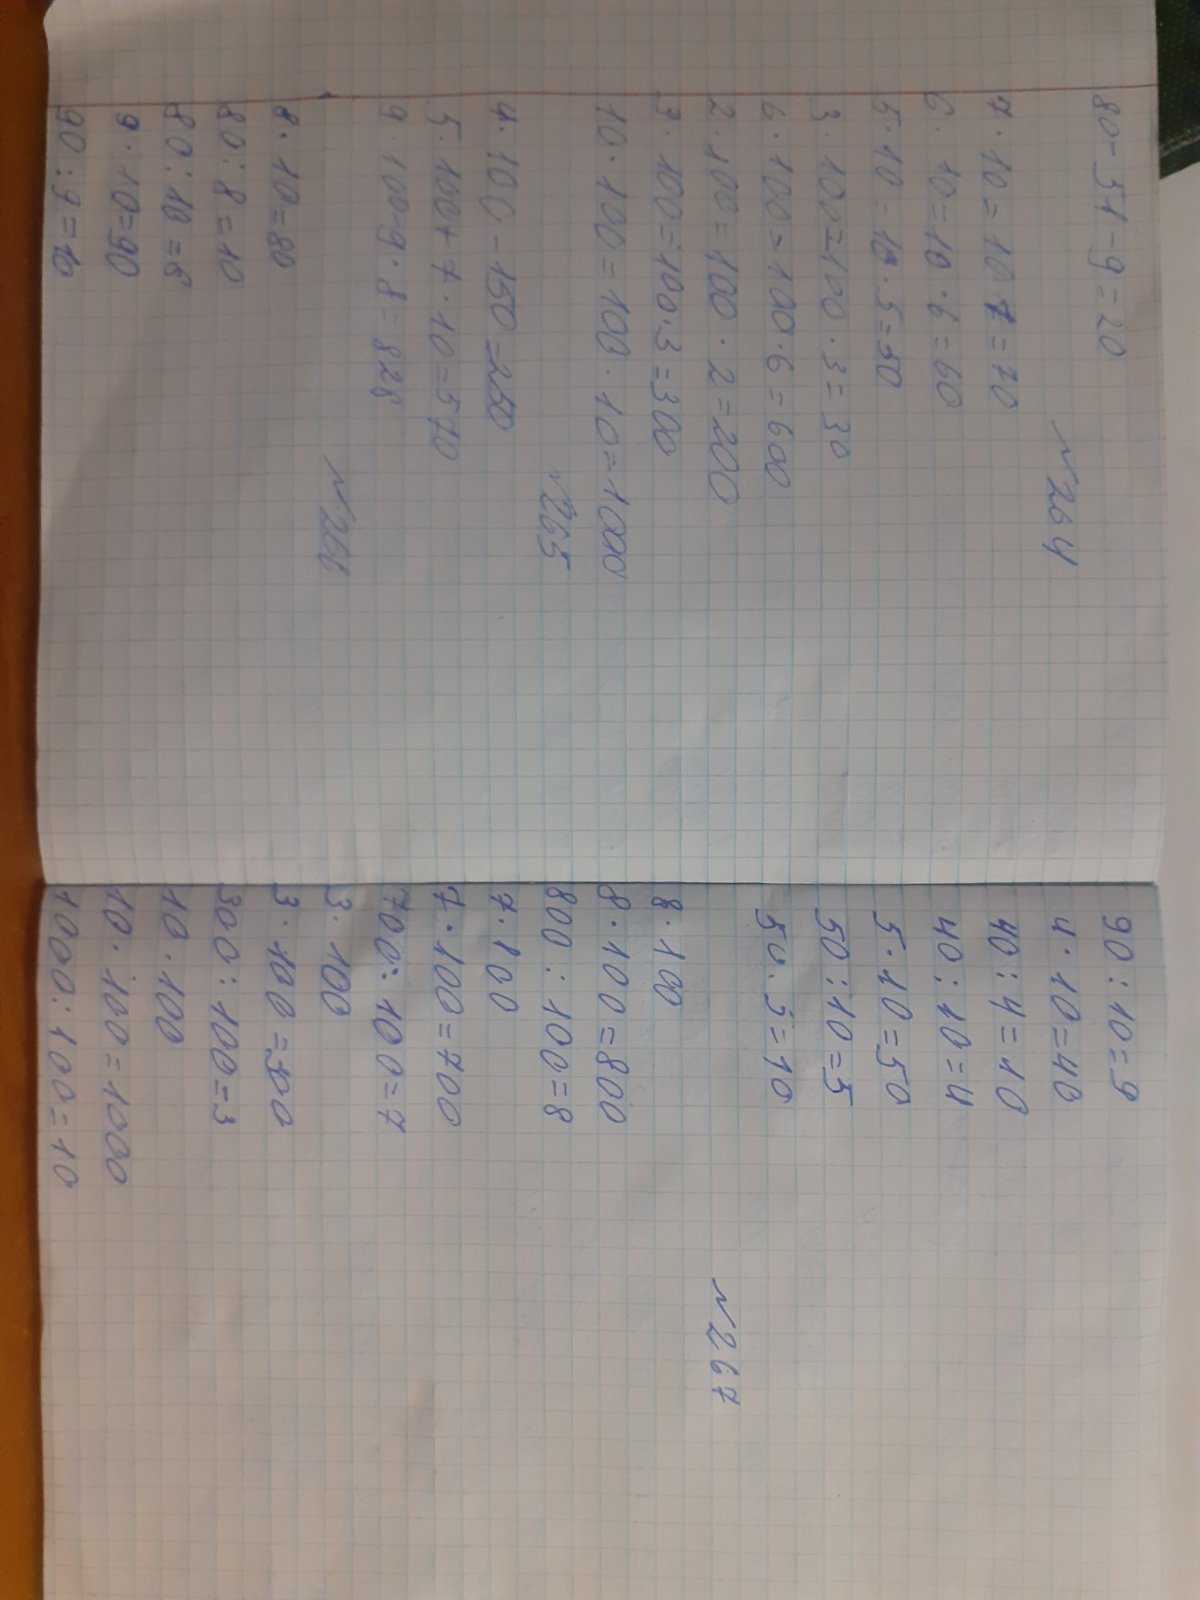 80-51-9=20
№264
7·10=10·7=70
6·10=10·6=60
5·10=10·5=50
3·100=100·3=30
6·100=100·6=600
2·100=100·2=200
3·100=100·3=300
10·100=100·10=1000
№265
4·100-150=250
5·100+7·10=570
9·100-9·8=828
№266
8·10=80
80:8=10
80:10=8
9·10=90
90:9=10
90:10=9
4·10=40
40:4=10
40:10=4
5·10=50
50:10=5
50:5=10
№267
8·100
8·100=800
800:100=8
7·100
7·100=700
700:100=7
3·100
3·100=300
300:100=3
10·100
10·100=1000
1000:100=10